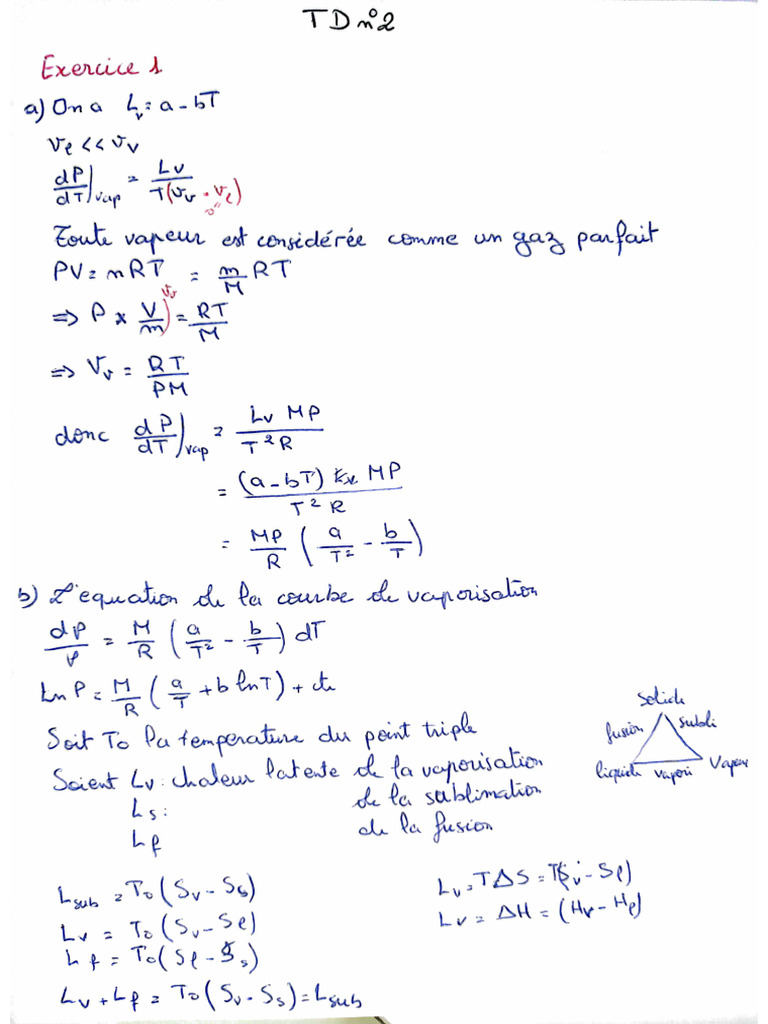 TD n°2
Exercice 1
a) On a Lv = a - bT
Vl << Vv
dP/dT)vap = Lv / T(Vv - Vl)
0
Toute vapeur est considérée comme un gaz parfait
PV = nRT = m/M RT
Vv
=> P x V/m) = RT/M
=> Vv = RT/PM
donc dP/dT)vap = Lv MP / T²R
= (a - bT) MP / T²R
= MP/R (a/T² - b/T)
b) L'equation de la courbe de vaporisation
dP/P = M/R (a/T² - b/T) dT
Ln P = M/R (a/T + b lnT) + cte
Soit To la temperature du point triple
Soient Lv : chaleur latente de la vaporisation
Ls : de la sublimation
Lf de la fusion
solide
fusion subli
liquide vapori Vapeur
Lsub = To (Sv - Ss)
Lv = To (Sv - Sl)
Lf = To (Sl - Ss)
Lv + Lf = To (Sv - Ss) = Lsub
Lv = TΔS = T(Sv - Sl)
Lv = ΔH = (Hv - Hl)